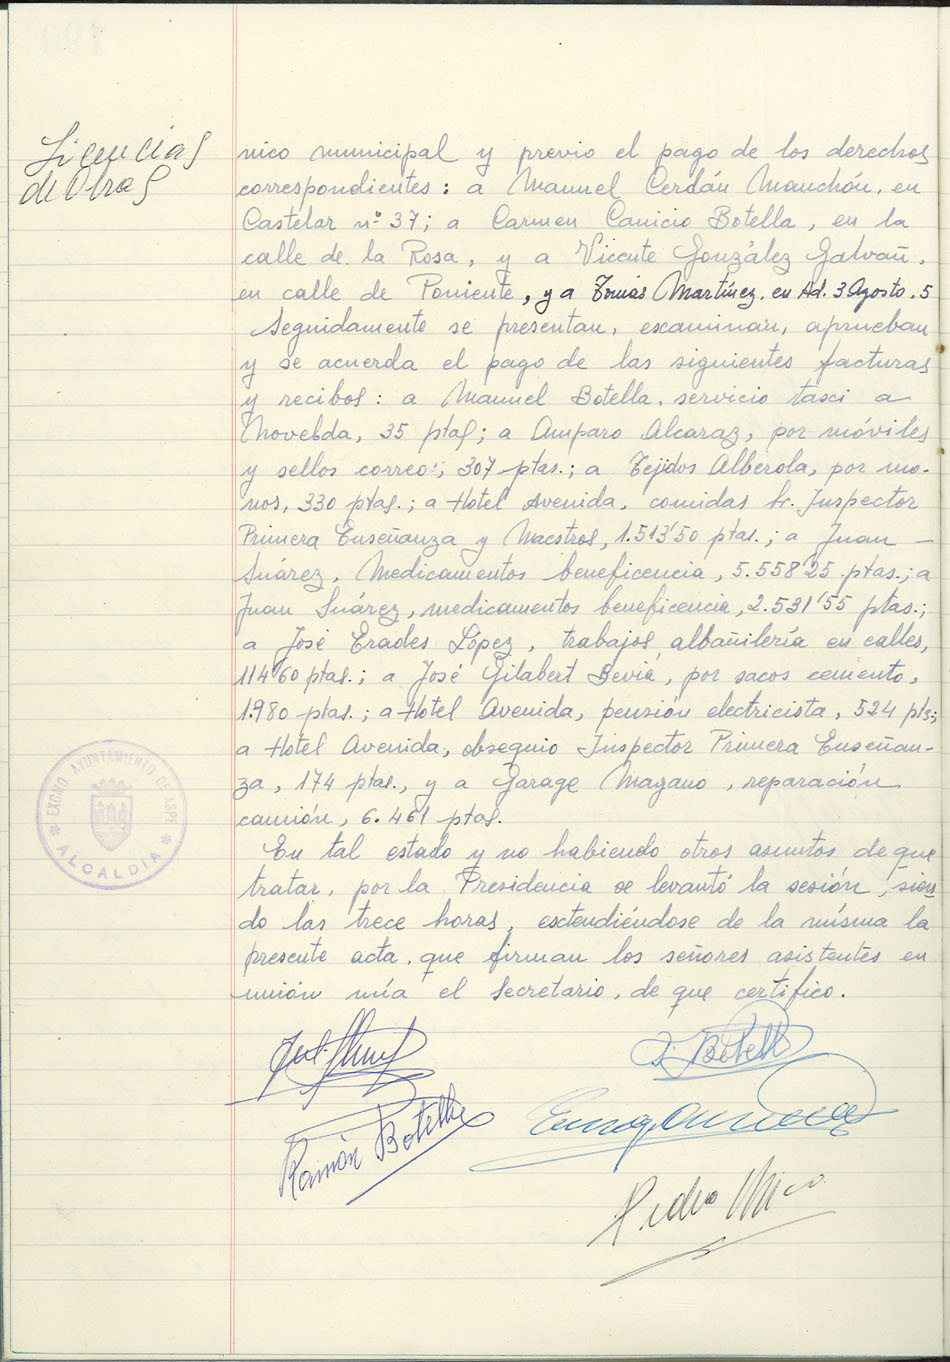 Licencias
de Obras
nico municipal y previo el pago de los derechos
correspondientes: a Manuel Cerdán Manchón, en
Castelar nº 37; a Carmen Canicio Botella, en la
calle de la Rosa, y a Vicente González Galvañ,
en calle de Poniente, y a Tomás Martínez, en Ad. 3 Agosto, 5
Seguidamente se presentan, escaminan, aprueban
y se acuerda el pago de las siguientes facturas
y recibos: a Manuel Botella, servicio tasci a
Novelda, 35 ptas; a Amparo Alcaraz, por móviles
y sellos correo:, 307 ptas.; a Tejidos Alberola, por mo-
nos, 330 ptas.; a Hotel Avenida, comidas Sr. Inspector
Primera Enseñanza y Maestros, 1.513'50 ptas.; a Juan —
Suárez, Medicamentos beneficencia, 5.558'25 ptas.; a
Juan Suárez, medicamentos beneficencia, 2.531'55 ptas.;
a José Erades López, trabajos albañilería en calles,
114'60 ptas.; a José Gilabert Beviá, por sacos cemento,
1.980 ptas.; a Hotel Avenida, pensión electricista, 524 pts;
a Hotel Avenida, obsequio Inspector Primera Enseñan-
za, 174 ptas., y a Garage Magano, reparación
camión, 6.461 ptas.
En tal estado y no habiendo otros asuntos de que
tratar, por la Presidencia se levantó la sesión, sien
do las trece horas, esctendiéndose de la misma la
presente acta, que firman los señores asistentes en
unión mía el Secretario, de que certifico.
EXCMO. AYUNTAMIENTO DE ASPE
* ALCALDIA *
Botella
Ramón Botella
Pedro Mico